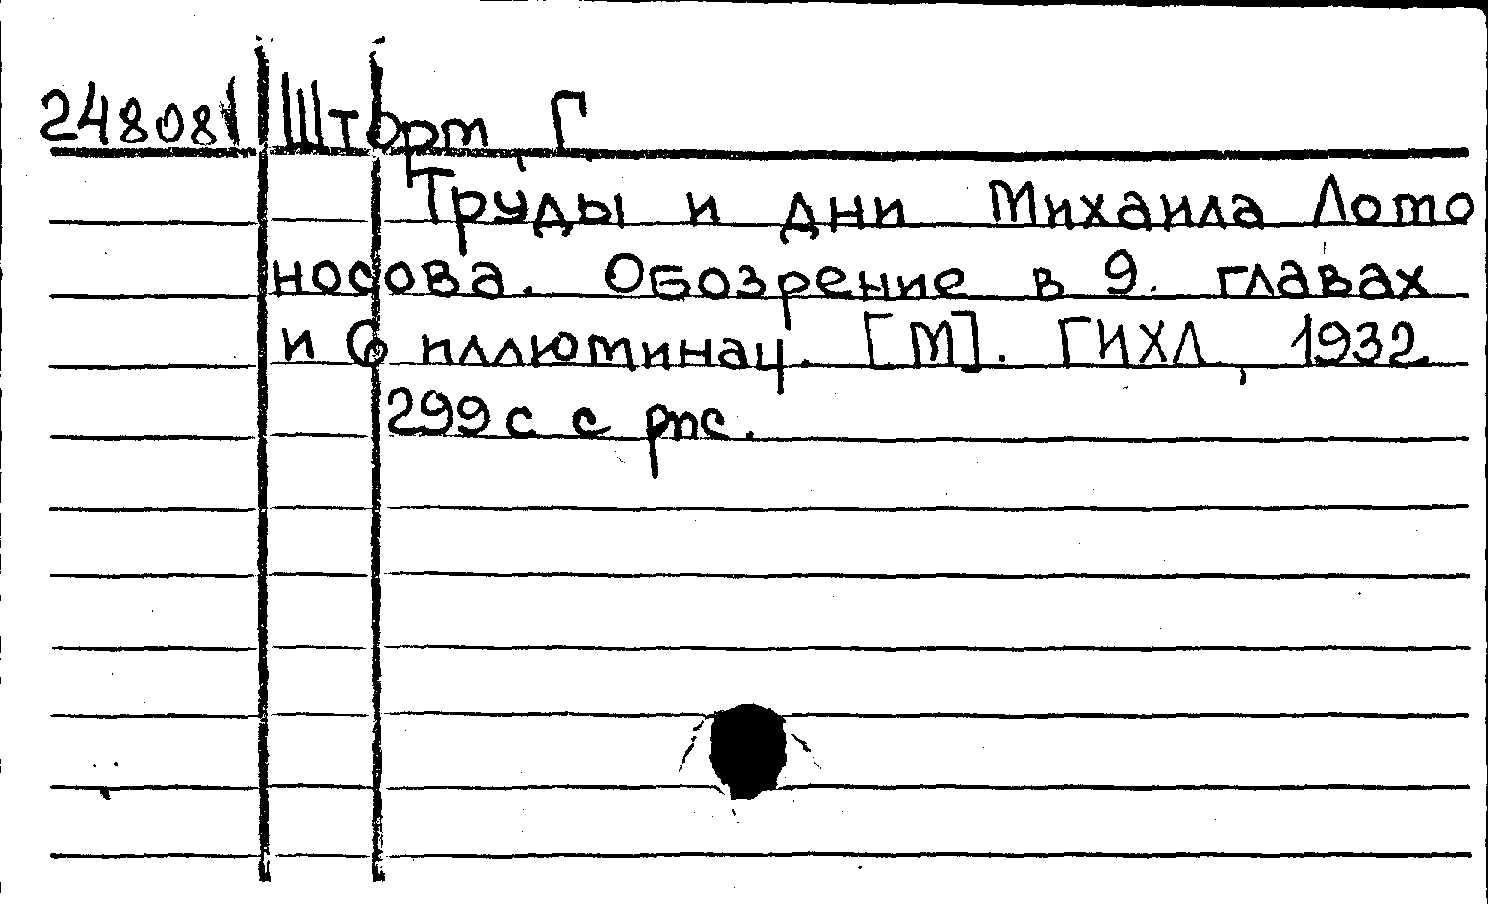 248081 Шторм, Г
Труды и дни Михаила Ломо
носова. Обозрение в 9. главах
и 6 иллюминац. [М]. ГИХЛ, 1932
299 с с рис.